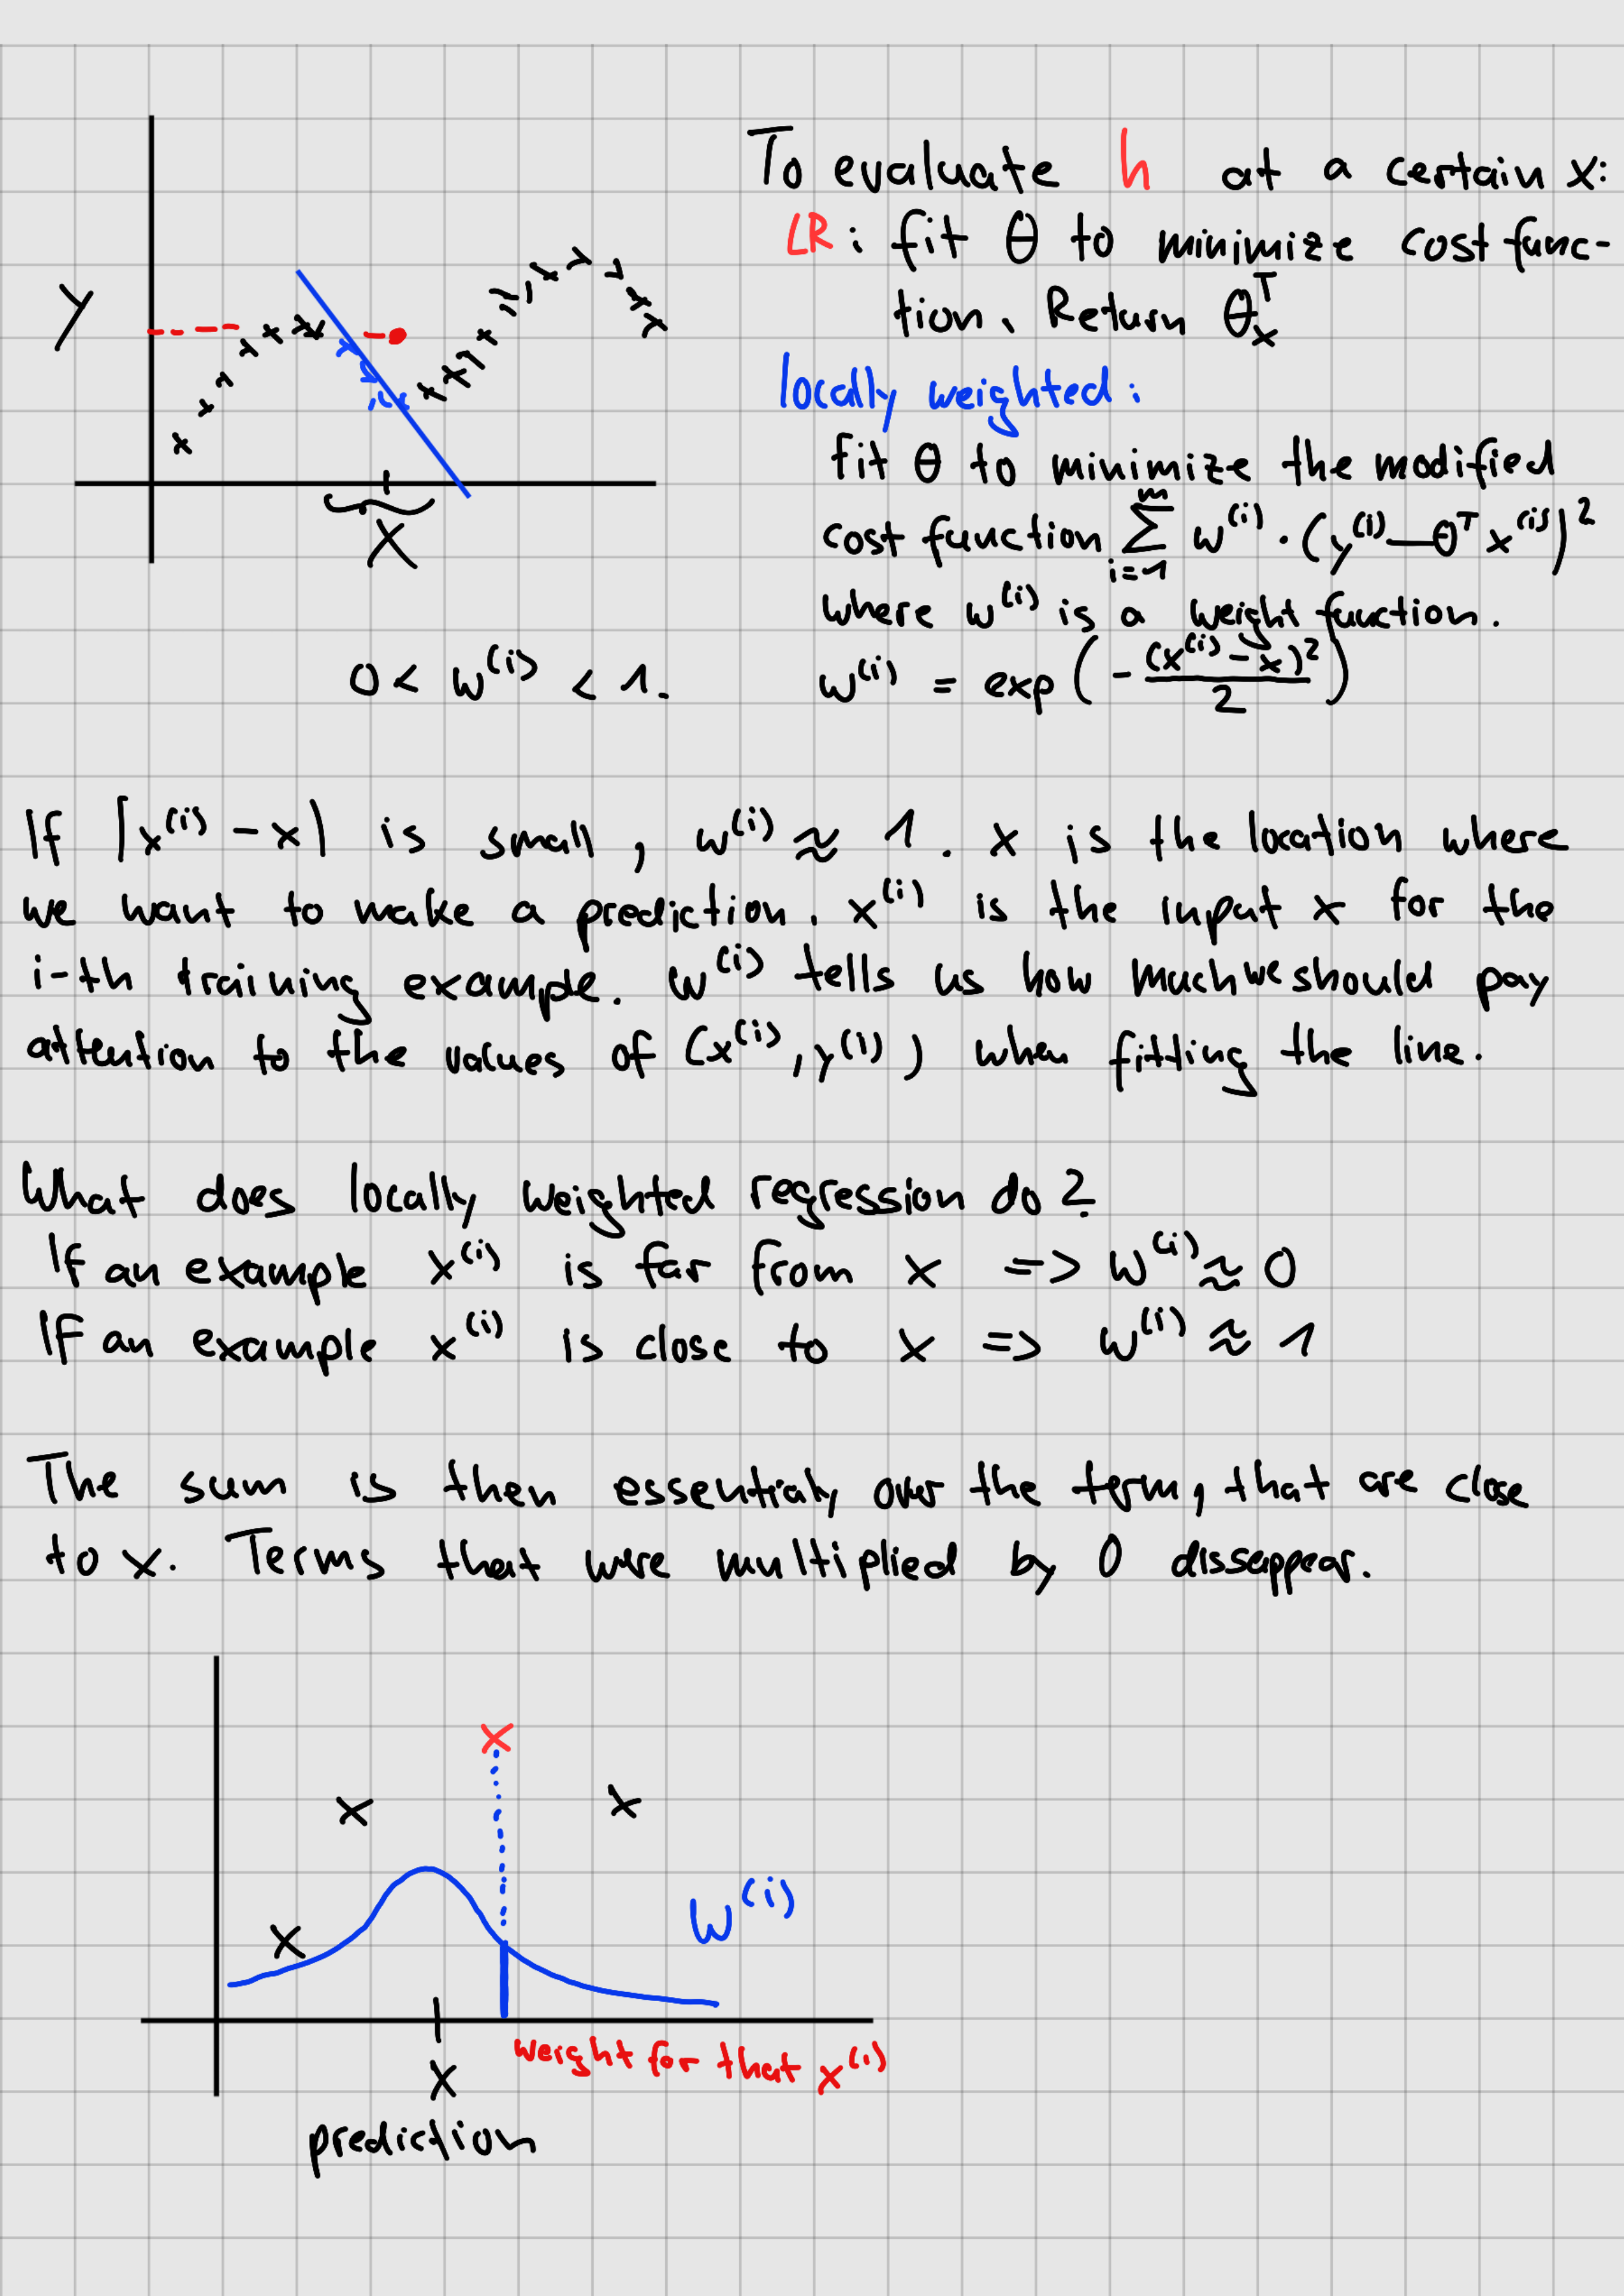 To evaluate h at a certain x:
LR: fit θ to minimize cost func-
tion. Return θᵀx
y
locally weighted:
fit θ to minimize the modified
cost function ∑_{i=1}^{m} w⁽ⁱ⁾ · (y⁽ⁱ⁾ — θᵀ x⁽ⁱ⁾)²
x
where w⁽ⁱ⁾ is a weight function.
0 < w⁽ⁱ⁾ < 1.
w⁽ⁱ⁾ = exp(- (x⁽ⁱ⁾ - x)² / 2)
If |x⁽ⁱ⁾ - x| is small, w⁽ⁱ⁾ ≈ 1. x is the location where
we want to make a prediction. x⁽ⁱ⁾ is the input x for the
i-th training example. w⁽ⁱ⁾ tells us how much we should pay
attention to the values of (x⁽ⁱ⁾, y⁽ⁱ⁾) when fitting the line.
What does locally weighted regression do?
If an example x⁽ⁱ⁾ is far from x => w⁽ⁱ⁾ ≈ 0
If an example x⁽ⁱ⁾ is close to x => w⁽ⁱ⁾ ≈ 1
The sum is then essentialy over the term, that are close
to x. Terms that were multiplied by 0 dissappear.
w⁽ⁱ⁾
weight for that x⁽ⁱ⁾
x
prediction